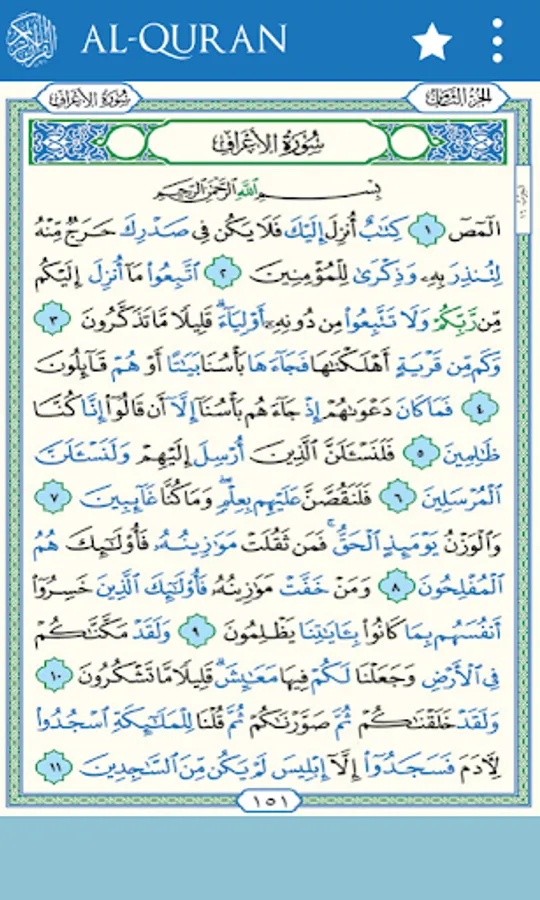 AL-QURAN
الجزء الثامن
سورة الأعراف
سُورَةُ الأَعْرَافِ
بِسْمِ اللَّهِ الرَّحْمَٰنِ الرَّحِيمِ
الٓمٓصٓ ١ كِتَٰبٌ أُنزِلَ إِلَيْكَ فَلَا يَكُن فِى صَدْرِكَ حَرَجٌ مِّنْهُ
لِتُنذِرَ بِهِۦ وَذِكْرَىٰ لِلْمُؤْمِنِينَ ٢ ٱتَّبِعُوا۟ مَآ أُنزِلَ إِلَيْكُم
مِّن رَّبِّكُمْ وَلَا تَتَّبِعُوا۟ مِن دُونِهِۦٓ أَوْلِيَآءَ ۗ قَلِيلًا مَّا تَذَكَّرُونَ ٣
وَكَم مِّن قَرْيَةٍ أَهْلَكْنَٰهَا فَجَآءَهَا بَأْسُنَا بَيَٰتًا أَوْ هُمْ قَآئِلُونَ
٤ فَمَا كَانَ دَعْوَىٰهُمْ إِذْ جَآءَهُم بَأْسُنَآ إِلَّآ أَن قَالُوٓا۟ إِنَّا كُنَّا
ظَٰلِمِينَ ٥ فَلَنَسْـَٔلَنَّ ٱلَّذِينَ أُرْسِلَ إِلَيْهِمْ وَلَنَسْـَٔلَنَّ
ٱلْمُرْسَلِينَ ٦ فَلَنَقُصَّنَّ عَلَيْهِم بِعِلْمٍ ۖ وَمَا كُنَّا غَآئِبِينَ ٧
وَٱلْوَزْنُ يَوْمَئِذٍ ٱلْحَقُّ ۚ فَمَن ثَقُلَتْ مَوَٰزِينُهُۥ فَأُو۟لَٰٓئِكَ هُمُ
ٱلْمُفْلِحُونَ ٨ وَمَنْ خَفَّتْ مَوَٰزِينُهُۥ فَأُو۟لَٰٓئِكَ ٱلَّذِينَ خَسِرُوٓا۟
أَنفُسَهُم بِمَا كَانُوا۟ بِـَٔايَٰتِنَا يَظْلِمُونَ ٩ وَلَقَدْ مَكَّنَّٰكُمْ
فِى ٱلْأَرْضِ وَجَعَلْنَا لَكُمْ فِيهَا مَعَٰيِشَ ۗ قَلِيلًا مَّا تَشْكُرُونَ ١٠
وَلَقَدْ خَلَقْنَٰكُمْ ثُمَّ صَوَّرْنَٰكُمْ ثُمَّ قُلْنَا لِلْمَلَٰٓئِكَةِ ٱسْجُدُوا۟
لِـَٔادَمَ فَسَجَدُوٓا۟ إِلَّآ إِبْلِيسَ لَمْ يَكُن مِّنَ ٱلسَّٰجِدِينَ ١١
١٥١